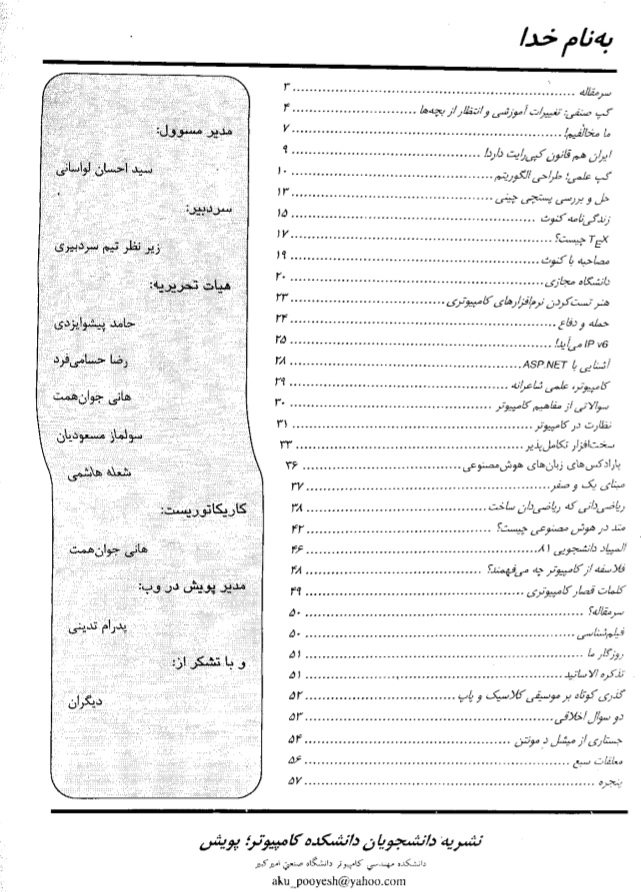 به‌نام خدا
سرمقاله ... ۳
گپ صنفی: تغییرات آموزشی و انتظار از بچه‌ها ... ۴
ما مخالفیم! ... ۷
ایران هم قانون کپی‌رایت دارد! ... ۹
گپ علمی؛ طراحی الگوریتم ... ۱۰
حل و بررسی پستچی چینی ... ۱۳
زندگی‌نامه کنوث ... ۱۵
TEX چیست؟ ... ۱۷
مصاحبه با کنوث ... ۱۹
دانشگاه مجازی ... ۲۰
هنر تست‌کردن نرم‌افزارهای کامپیوتری ... ۲۳
حمله و دفاع ... ۲۴
IP v6 می‌آید! ... ۲۵
آشنایی با ASP.NET ... ۲۸
کامپیوتر، علمی شاعرانه ... ۲۹
سوالاتی از مفاهیم کامپیوتر ... ۳۰
نظارت در کامپیوتر ... ۳۱
سخت‌افزار تکامل‌پذیر ... ۳۳
پارادکس‌های زبان‌های هوش‌مصنوعی ... ۳۶
مبنای یک و صفر ... ۳۷
ریاضی‌دانی که ریاضی‌دان ساخت ... ۳۸
متد در هوش مصنوعی چیست؟ ... ۴۲
المپیاد دانشجویی ۸۱ ... ۴۶
فلاسفه از کامپیوتر چه می‌فهمند؟ ... ۴۸
کلمات قصار کامپیوتری ... ۴۹
سرمقاله؟ ... ۵۰
فیلم‌شناسی ... ۵۰
روزگار ما ... ۵۱
تذکره الاساتید ... ۵۱
گذری کوتاه بر موسیقی کلاسیک و پاپ ... ۵۲
دو سوال اخلاقی ... ۵۳
جستاری از میشل د مونتن ... ۵۴
معلقات سبع ... ۵۶
پنجره ... ۵۷
مدیر مسوول:
سید احسان لواسانی
سردبیر:
زیر نظر تیم سردبیری
هیات تحریریه:
حامد پیشوایزدی
رضا حسامی‌فرد
هانی جوان‌همت
سولماز مسعودیان
شعله هاشمی
کاریکاتوریست:
هانی جوان‌همت
مدیر پویش در وب:
پدرام تدینی
و با تشکر از:
دیگران
نشریه دانشجویان دانشکده کامپیوتر؛ پویش
دانشکده مهندسی کامپیوتر دانشگاه صنعتی امیرکبیر
aku_pooyesh@yahoo.com